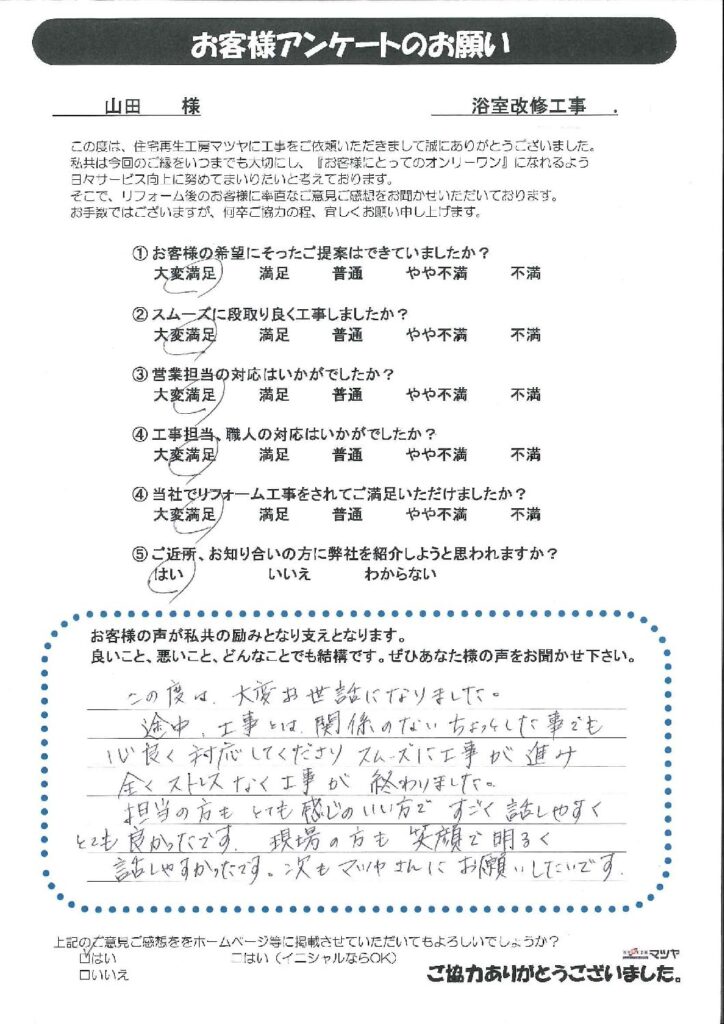 お客様アンケートのお願い
山田 様 浴室改修工事 .
この度は、住宅再生工房マツヤに工事をご依頼いただきまして誠にありがとうございました。
私共は今回のご縁をいつまでも大切にし、『お客様にとってのオンリーワン』になれるよう
日々サービス向上に努めてまいりたいと考えております。
そこで、リフォーム後のお客様に率直なご意見ご感想をお聞かせいただいております。
お手数ではございますが、何卒ご協力の程、宜しくお願い申し上げます。
①お客様の希望にそったご提案はできていましたか?
大変満足 満足 普通 やや不満 不満
②スムーズに段取り良く工事しましたか?
大変満足 満足 普通 やや不満 不満
③営業担当の対応はいかがでしたか?
大変満足 満足 普通 やや不満 不満
④工事担当、職人の対応はいかがでしたか?
大変満足 満足 普通 やや不満 不満
④当社でリフォーム工事をされてご満足いただけましたか?
大変満足 満足 普通 やや不満 不満
⑤ご近所、お知り合いの方に弊社を紹介しようと思われますか?
はい いいえ わからない
お客様の声が私共の励みとなり支えとなります。
良いこと、悪いこと、どんなことでも結構です。ぜひあなた様の声をお聞かせ下さい。
この度は、大変お世話になりました。
途中、工事とは、関係のないちょっとした事でも
心良く対応してくださり スムーズに工事が進み
全くストレスなく工事が終わりました。
担当の方もとても感じのいい方で すごく話しやすく
とても良かったです。現場の方も笑顔で明るく
話しやすかったです。次もマツヤさんにお願いしたいです。
上記のご意見ご感想ををホームページ等に掲載させていただいてもよろしいでしょうか?
□はい □はい(イニシャルならOK)
□いいえ
マツヤ
ご協力ありがとうございました。